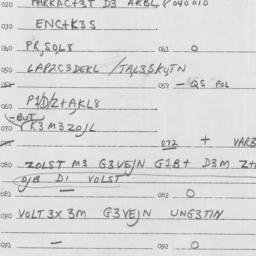 020 ARBL 040010
030 ENC+K3S
040 PR,SOL8 041 0
050 LAP2C3DEKL /TAL3SKYTN
052 — QS POL
060 P10/Z+AKL8
-BUT-
070 YR3M3ZOJL
072 + VAR3
080 ZOLST M3 G3VEJN G1B+ D3M Z+
OJB D1 VOLST
081 — 082 0
090 VOLT3X 3M G3VEJN UNG3TIN
091 — 092 0